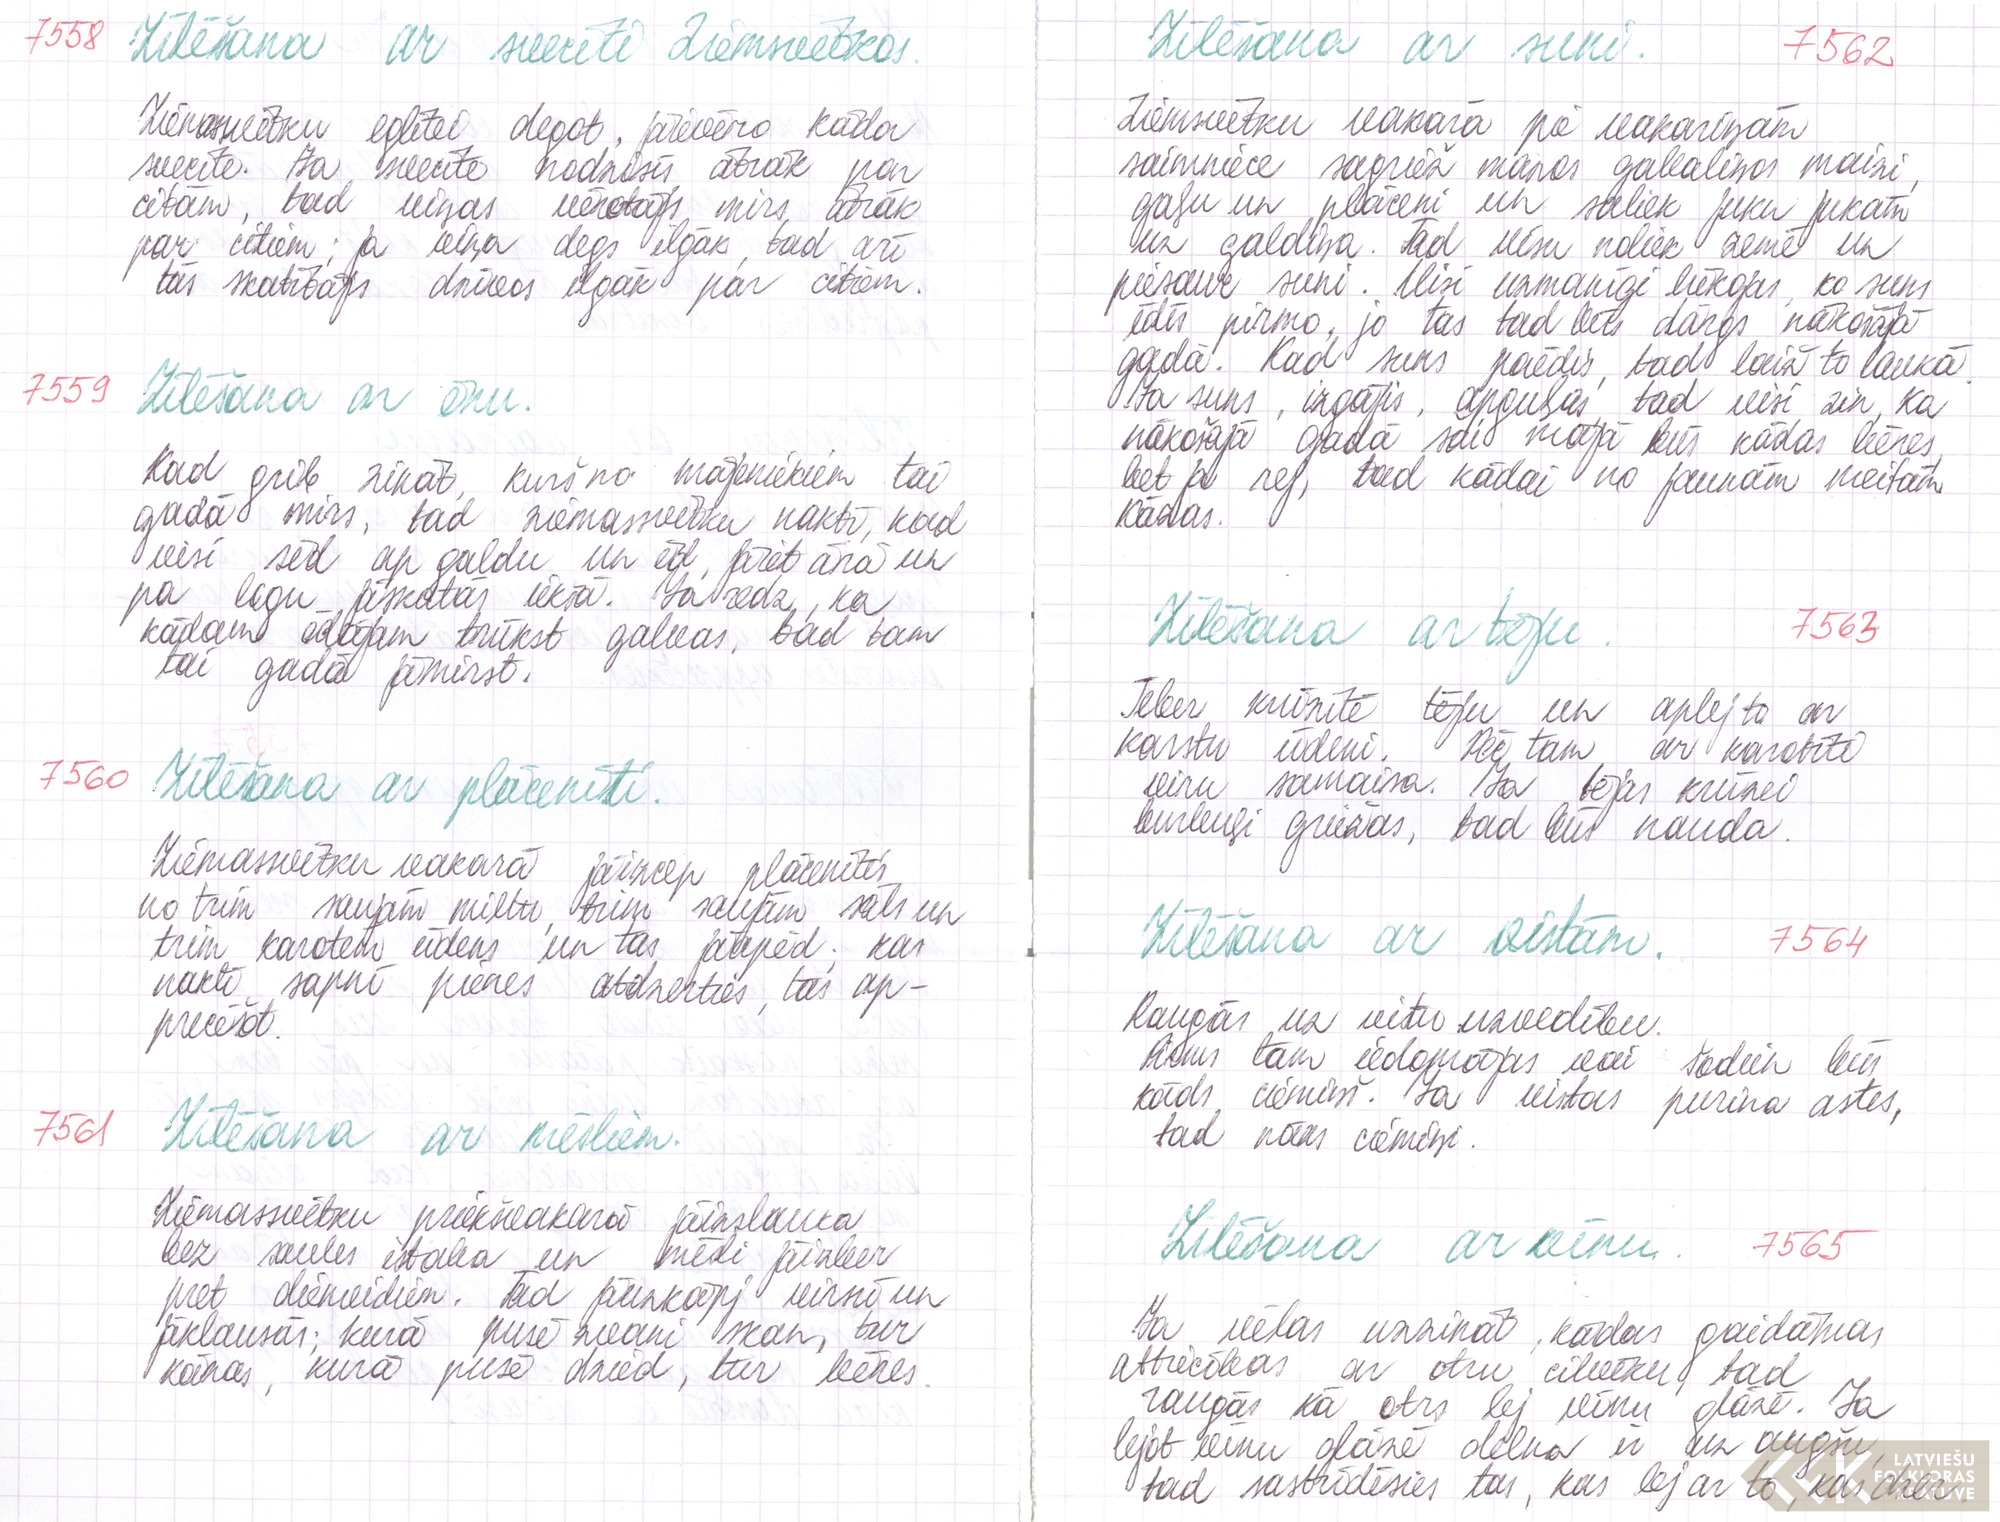 7558 Zīlēšana ar svecīti Ziemsvētkos.
Ziemassvētku eglītei degot, jāievēro kāda
svecīte. Ja svecīte nodzisīs ātrāk par
citām, tad viņas vērotājs mirs ātrāk
par citiem; ja viņa degs ilgāk, tad arī
tās skatītājs dzīvos ilgāk par citiem.
7559 Zīlēšana ar ēnu.
Kad grib zināt, kurš no mājeniekiem tai
gadā mirs, tad ziemassvētku naktī, kad
visi sēd ap galdu un ēd, jāiet ārā un
pa logu jāskatās iekšā. Ja redz, ka
kādam ēdājam trūkst galvas, tad tam
tai gadā jāmirst.
7560 Zīlēšana ar plācenīti.
Ziemassvētku vakarā jāizcep plācenītis
no trim saujām miltu, trim saujām sāls un
trim karotēm ūdens un tas jāapēd; kas
naktī sapnī pienes atdzerties, tas ap-
precēšot.
7561 Zīlēšana ar mēsliem.
Ziemassvētku priekšvakarā jāizslauka
bez saules istaba un mēsli jāizber
pret dienvidiem. Tad jāuzkāpj virsū un
jāklausās; kurā pusē zvani skan, tur
kāzas, kurā pusē dzied, tur bēres.
Zīlēšana ar suni. 7562
Ziemsvētku vakarā pē vakariņām
saimniece sagriež mazos gabaliņos maizi,
gaļu un plāceni un saliek juku jukām
uz galdiņa. Tad visu noliek zemē un
piesauc suni. Visi uzmanīgi lūkojas, ko suns
ēdīs pirmo, jo tas tad būs dārgs nākošājā
gadā. Kad suns paēdis, tad laiž to laukā.
Ja suns, izgājis, apguļas, tad visi zin, ka
nākošajā gadā šai mājā būs kādas bēres,
bet ja rej, tad kādai no jaunām meitām
kāzas.
Zīlēšana ar tēju. 7563
Ieber krūzītē tēju un aplej to ar
karstu ūdeni. Pēc tam ar karotīti
visu samaisa. Ja tējas krūzei
burbuļi griežas, tad būs nauda.
Zīlēšana ar vistām. 7564
Raugās uz vistu uzvedību.
Pirms tam iedomājas vai šodien būs
kāds ciemiņš. Ja vistas purina astes,
tad nāks ciemiņi.
Zīlēšana ar vīnu. 7565
Ja vēlas uzzināt, kādas gaidāmas
attiecības ar otru cilvēku, tad
raugās kā otrs lej vīnu glāzē. Ja
lejot vīnu glāzē delna ir uz augšu,
tad sastrīdēsies tas, kas lej ar to, kas dzer.
LATVIEŠU
FOLKLORAS
KRĀTUVE